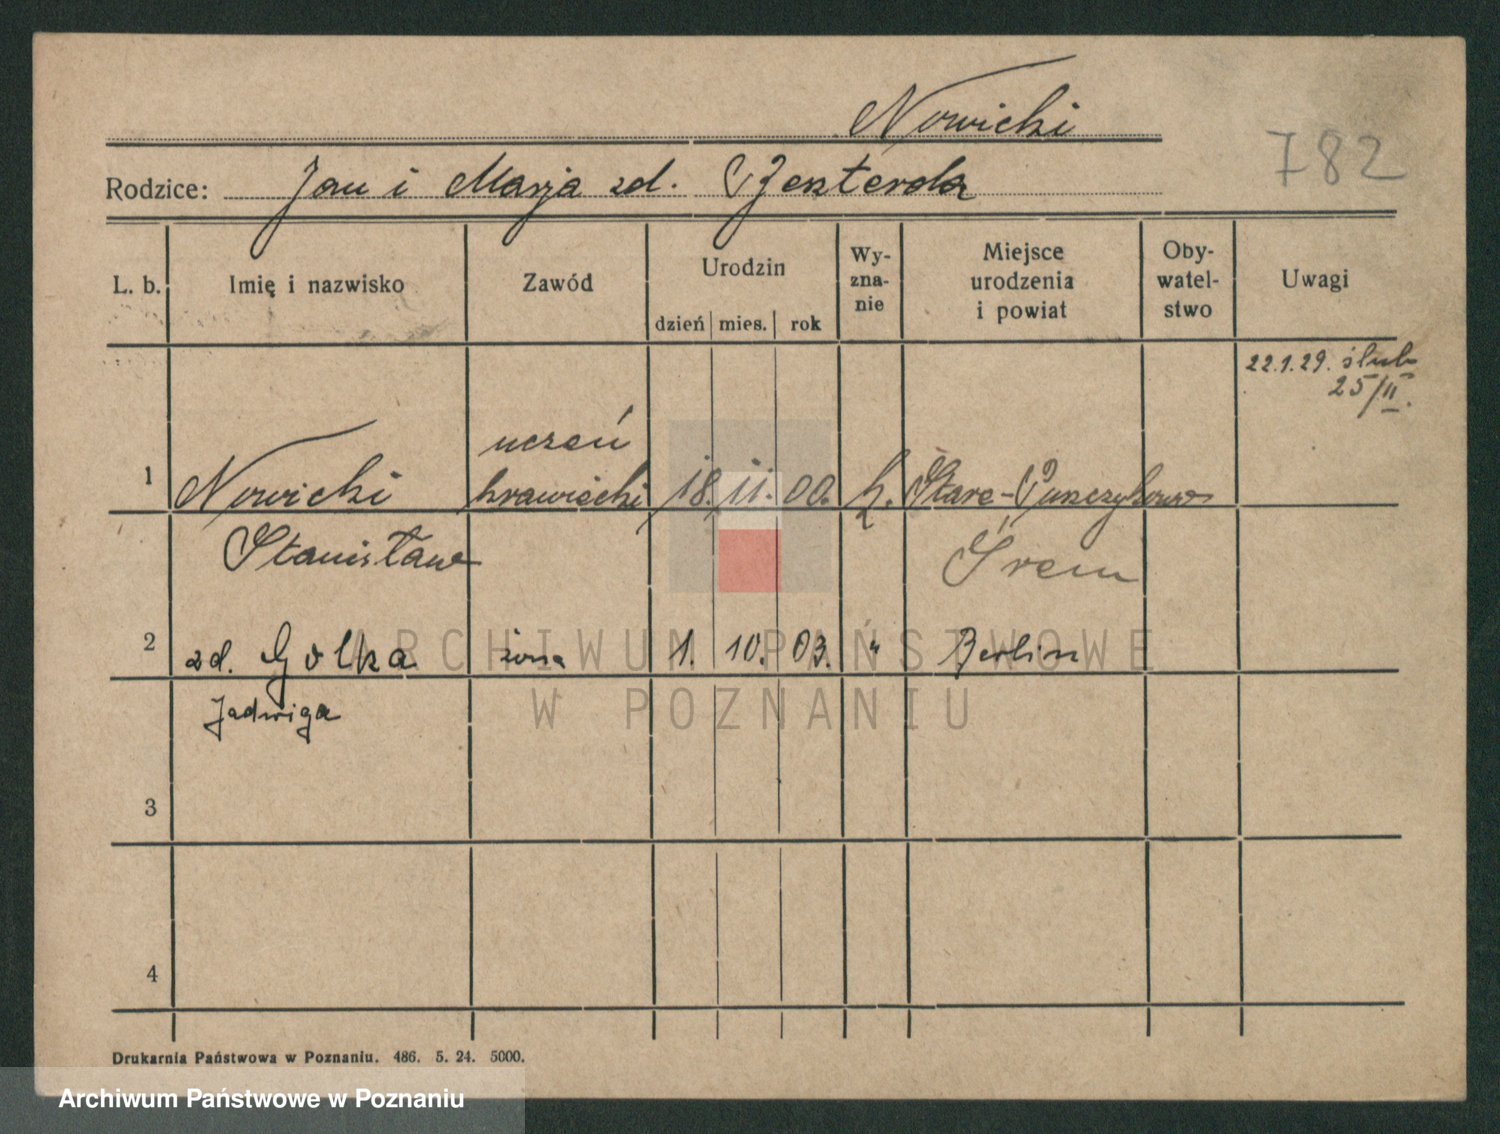 Nowicki
782
Rodzice: Jan i Marja zd.
L. b. Imię i nazwisko Zawód Urodzin dzień mies. rok Wy-zna-nie Miejsce urodzenia i powiat Oby-watel-stwo Uwagi
22.1.29. ślub
25/II.
uczeń
1 Nowicki krawiecki 18. 11. 00. k. Stare-Puszczykowo
Stanisław Śrem
2 zd. Golka żona 1. 10. 03. " Berlin
Jadwiga
3
4
ARCHIWUM PAŃSTWOWE
W POZNANIU
Drukarnia Państwowa w Poznaniu. 486. 5. 24. 5000.
Archiwum Państwowe w Poznaniu